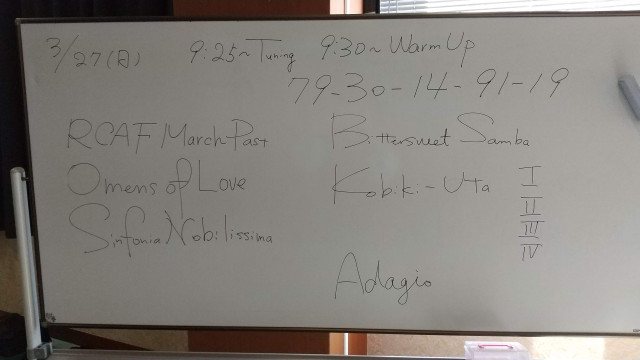 3/27(日) 9:25~Tuning 9:30~WarmUp
79-30-14-91-19
RCAF March Past
Omens of Love
Sinfonia Nobilissima
Bittersweet Samba
Kobiki-Uta I
II
III
IV
Adagio